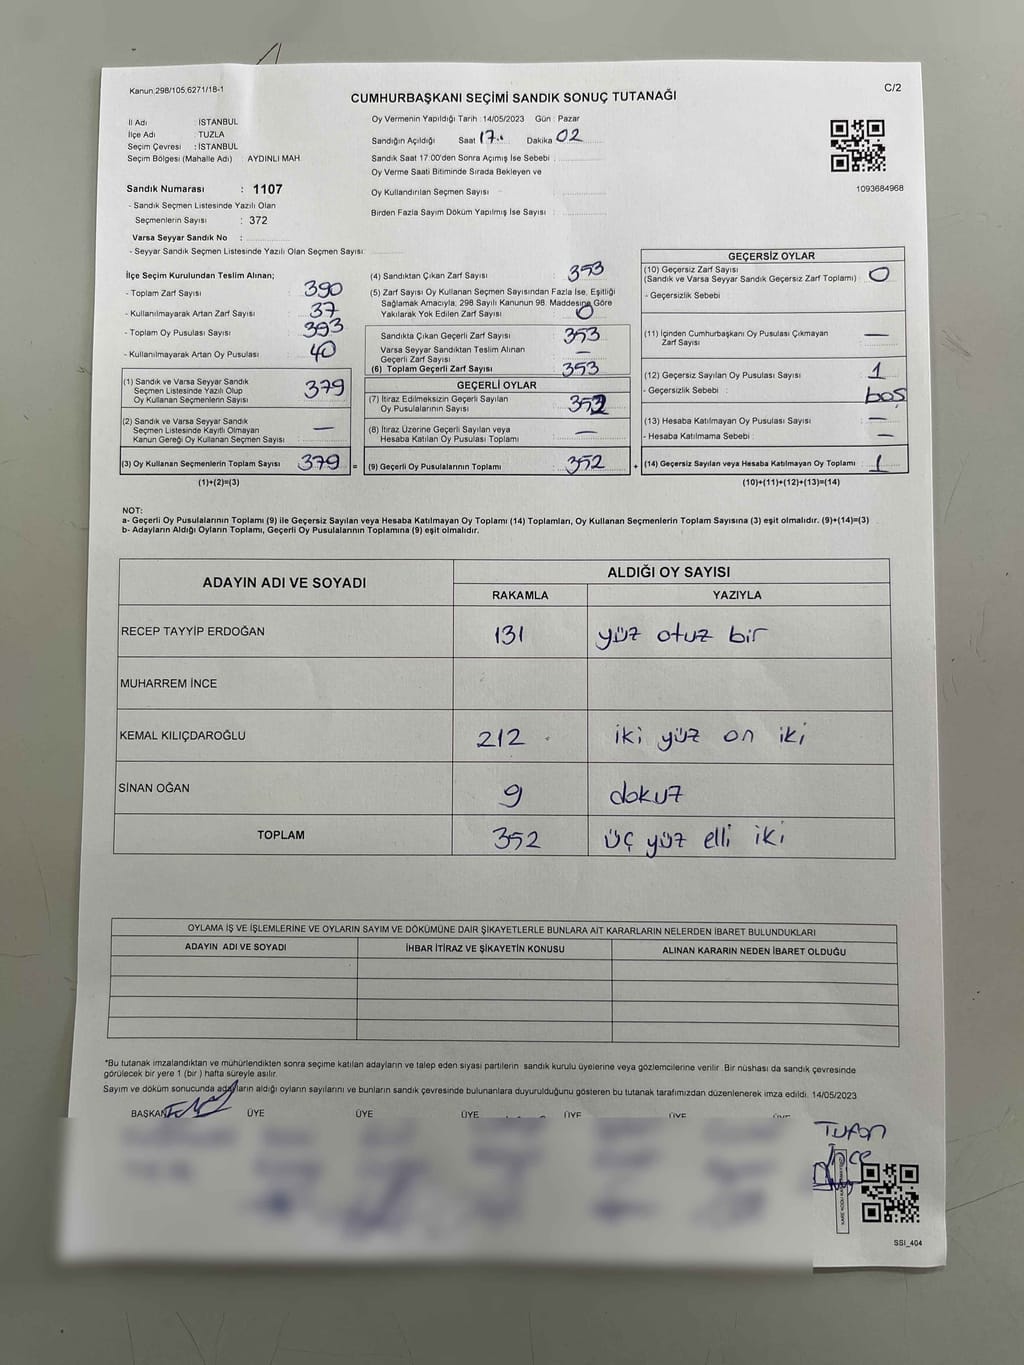 Kanun:298/105,6271/18-1
C/2
CUMHURBAŞKANI SEÇİMİ SANDIK SONUÇ TUTANAĞI
İl Adı : İSTANBUL
İlçe Adı : TUZLA
Seçim Çevresi : İSTANBUL
Seçim Bölgesi (Mahalle Adı) : AYDINLI MAH
Sandık Numarası : 1107
- Sandık Seçmen Listesinde Yazılı Olan
Seçmenlerin Sayısı : 372
Varsa Seyyar Sandık No :
- Seyyar Sandık Seçmen Listesinde Yazılı Olan Seçmen Sayısı:
Oy Vermenin Yapıldığı Tarih : 14/05/2023 Gün : Pazar
Sandığın Açıldığı Saat 17 Dakika 02
Sandık Saat 17:00'den Sonra Açımış İse Sebebi :
Oy Verme Saati Bitiminde Sırada Bekleyen ve
Oy Kullandırılan Seçmen Sayısı
Birden Fazla Sayım Döküm Yapılmış İse Sayısı :
1093684968
İlçe Seçim Kurulundan Teslim Alınan;
- Toplam Zarf Sayısı : 390
- Kullanılmayarak Artan Zarf Sayısı : 37
- Toplam Oy Pusulası Sayısı : 393
- Kullanılmayarak Artan Oy Pusulası : 40
(1) Sandık ve Varsa Seyyar Sandık
Seçmen Listesinde Yazılı Olup
Oy Kullanan Seçmenlerin Sayısı : 379
(2) Sandık ve Varsa Seyyar Sandık
Seçmen Listesinde Kayıtlı Olmayan
Kanun Gereği Oy Kullanan Seçmen Sayısı : —
(3) Oy Kullanan Seçmenlerin Toplam Sayısı : 379
(1)+(2)=(3)
(4) Sandıktan Çıkan Zarf Sayısı : 353
(5) Zarf Sayısı Oy Kullanan Seçmen Sayısından Fazla İse, Eşitliği
Sağlamak Amacıyla, 298 Sayılı Kanunun 98. Maddesine Göre
Yakılarak Yok Edilen Zarf Sayısı : 0
Sandıkta Çıkan Geçerli Zarf Sayısı : 353
Varsa Seyyar Sandıktan Teslim Alınan
Geçerli Zarf Sayısı : —
(6) Toplam Geçerli Zarf Sayısı : 353
GEÇERLİ OYLAR
(7) İtiraz Edilmeksizin Geçerli Sayılan
Oy Pusulalarının Sayısı : 352
(8) İtiraz Üzerine Geçerli Sayılan veya
Hesaba Katılan Oy Pusulası Toplamı : —
= (9) Geçerli Oy Pusulalarının Toplamı : 352
GEÇERSİZ OYLAR
(10) Geçersiz Zarf Sayısı
(Sandık ve Varsa Seyyar Sandık Geçersiz Zarf Toplamı) : 0
- Geçersizlik Sebebi :
(11) İçinden Cumhurbaşkanı Oy Pusulası Çıkmayan
Zarf Sayısı : —
(12) Geçersiz Sayılan Oy Pusulası Sayısı : 1
- Geçersizlik Sebebi : boş
(13) Hesaba Katılmayan Oy Pusulası Sayısı : —
- Hesaba Katılmama Sebebi : —
+ (14) Geçersiz Sayılan veya Hesaba Katılmayan Oy Toplamı : 1
(10)+(11)+(12)+(13)=(14)
NOT:
a- Geçerli Oy Pusulalarının Toplamı (9) ile Geçersiz Sayılan veya Hesaba Katılmayan Oy Toplamı (14) Toplamları, Oy Kullanan Seçmenlerin Toplam Sayısına (3) eşit olmalıdır. (9)+(14)=(3)
b- Adayların Aldığı Oyların Toplamı, Geçerli Oy Pusulalarının Toplamına (9) eşit olmalıdır.
ADAYIN ADI VE SOYADI
ALDIĞI OY SAYISI
RAKAMLA YAZIYLA
RECEP TAYYİP ERDOĞAN 131 yüz otuz bir
MUHARREM İNCE
KEMAL KILIÇDAROĞLU 212 iki yüz on iki
SİNAN OĞAN 9 dokuz
TOPLAM 352 üç yüz elli iki
OYLAMA İŞ VE İŞLEMLERİNE VE OYLARIN SAYIM VE DÖKÜMÜNE DAİR ŞİKAYETLERLE BUNLARA AİT KARARLARIN NELERDEN İBARET BULUNDUKLARI
ADAYIN ADI VE SOYADI İHBAR İTİRAZ VE ŞİKAYETİN KONUSU ALINAN KARARIN NEDEN İBARET OLDUĞU
*Bu tutanak imzalandıktan ve mühürlendikten sonra seçime katılan adayların ve talep eden siyasi partilerin sandık kurulu üyelerine veya gözlemcilerine verilir. Bir nüshası da sandık çevresinde
görülecek bir yere 1 (bir ) hafta süreyle asılır.
Sayım ve döküm sonucunda adayların aldığı oyların sayılarını ve bunların sandık çevresinde bulunanlara duyurulduğunu gösteren bu tutanak tarafımızdan düzenlenerek imza edildi. 14/05/2023
BAŞKAN ÜYE ÜYE ÜYE ÜYE ÜYE ÜYE
Tufan
İnce
SSI_404